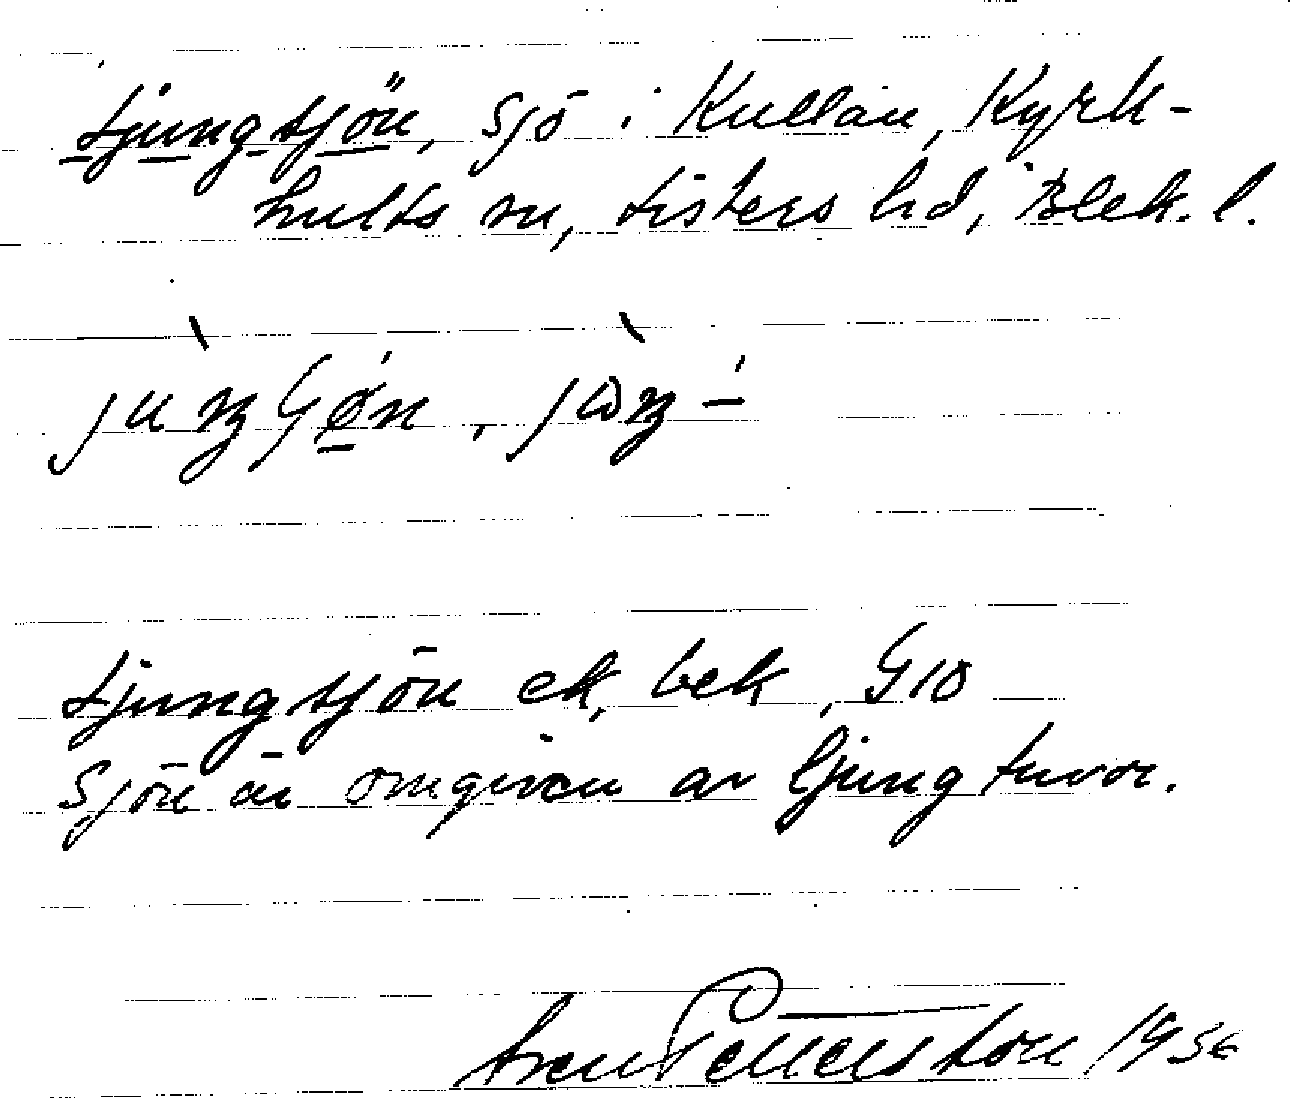 Ljungsjön, Sjö i Kullan, Kyrk-
hults sn, Listers hd, Blek. l.
Ljungsjön ek. bek, G10
Sjön är omgiven av ljungtuvor.
Sven Petersson 1956